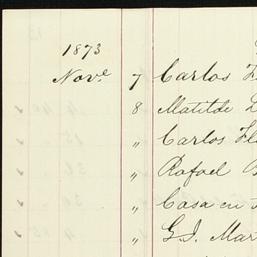 1873
Nove 7 Carlos
8 Matilde
" Carlos
" Rafael
" Casa en
" G. J. Mar